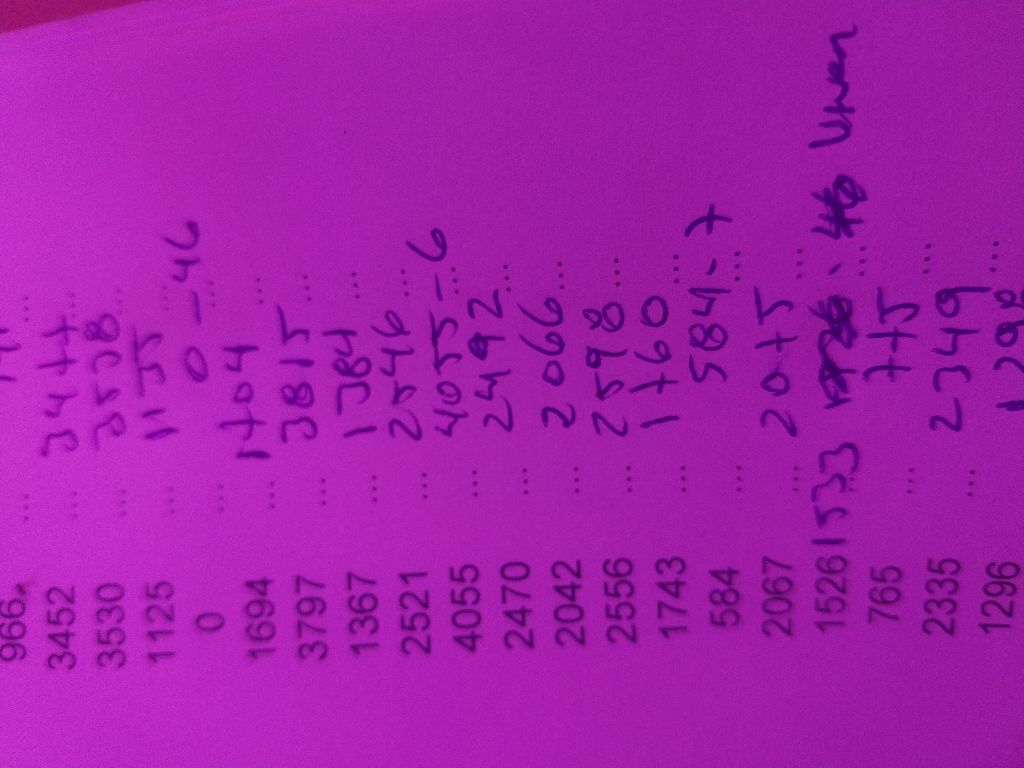 966 ...
3452 ... 3477 ...
3530 ... 3538 ...
1125 ... 1135 ...
0 ... 0 - 46 ...
1694 ... 1704 ...
3797 ... 3815 ...
1367 ... 1384 ...
2521 ... 2546 ...
4055 ... 4055 - 6 ...
2470 ... 2492 ...
2042 ... 2066 ...
2556 ... 2598 ...
1743 ... 1760 ...
584 ... 584 - 7 ...
2067 ... 2075 ...
1526 1533 ...
765 ... 775
2335 ... 2349 ...
1296 1298 ...